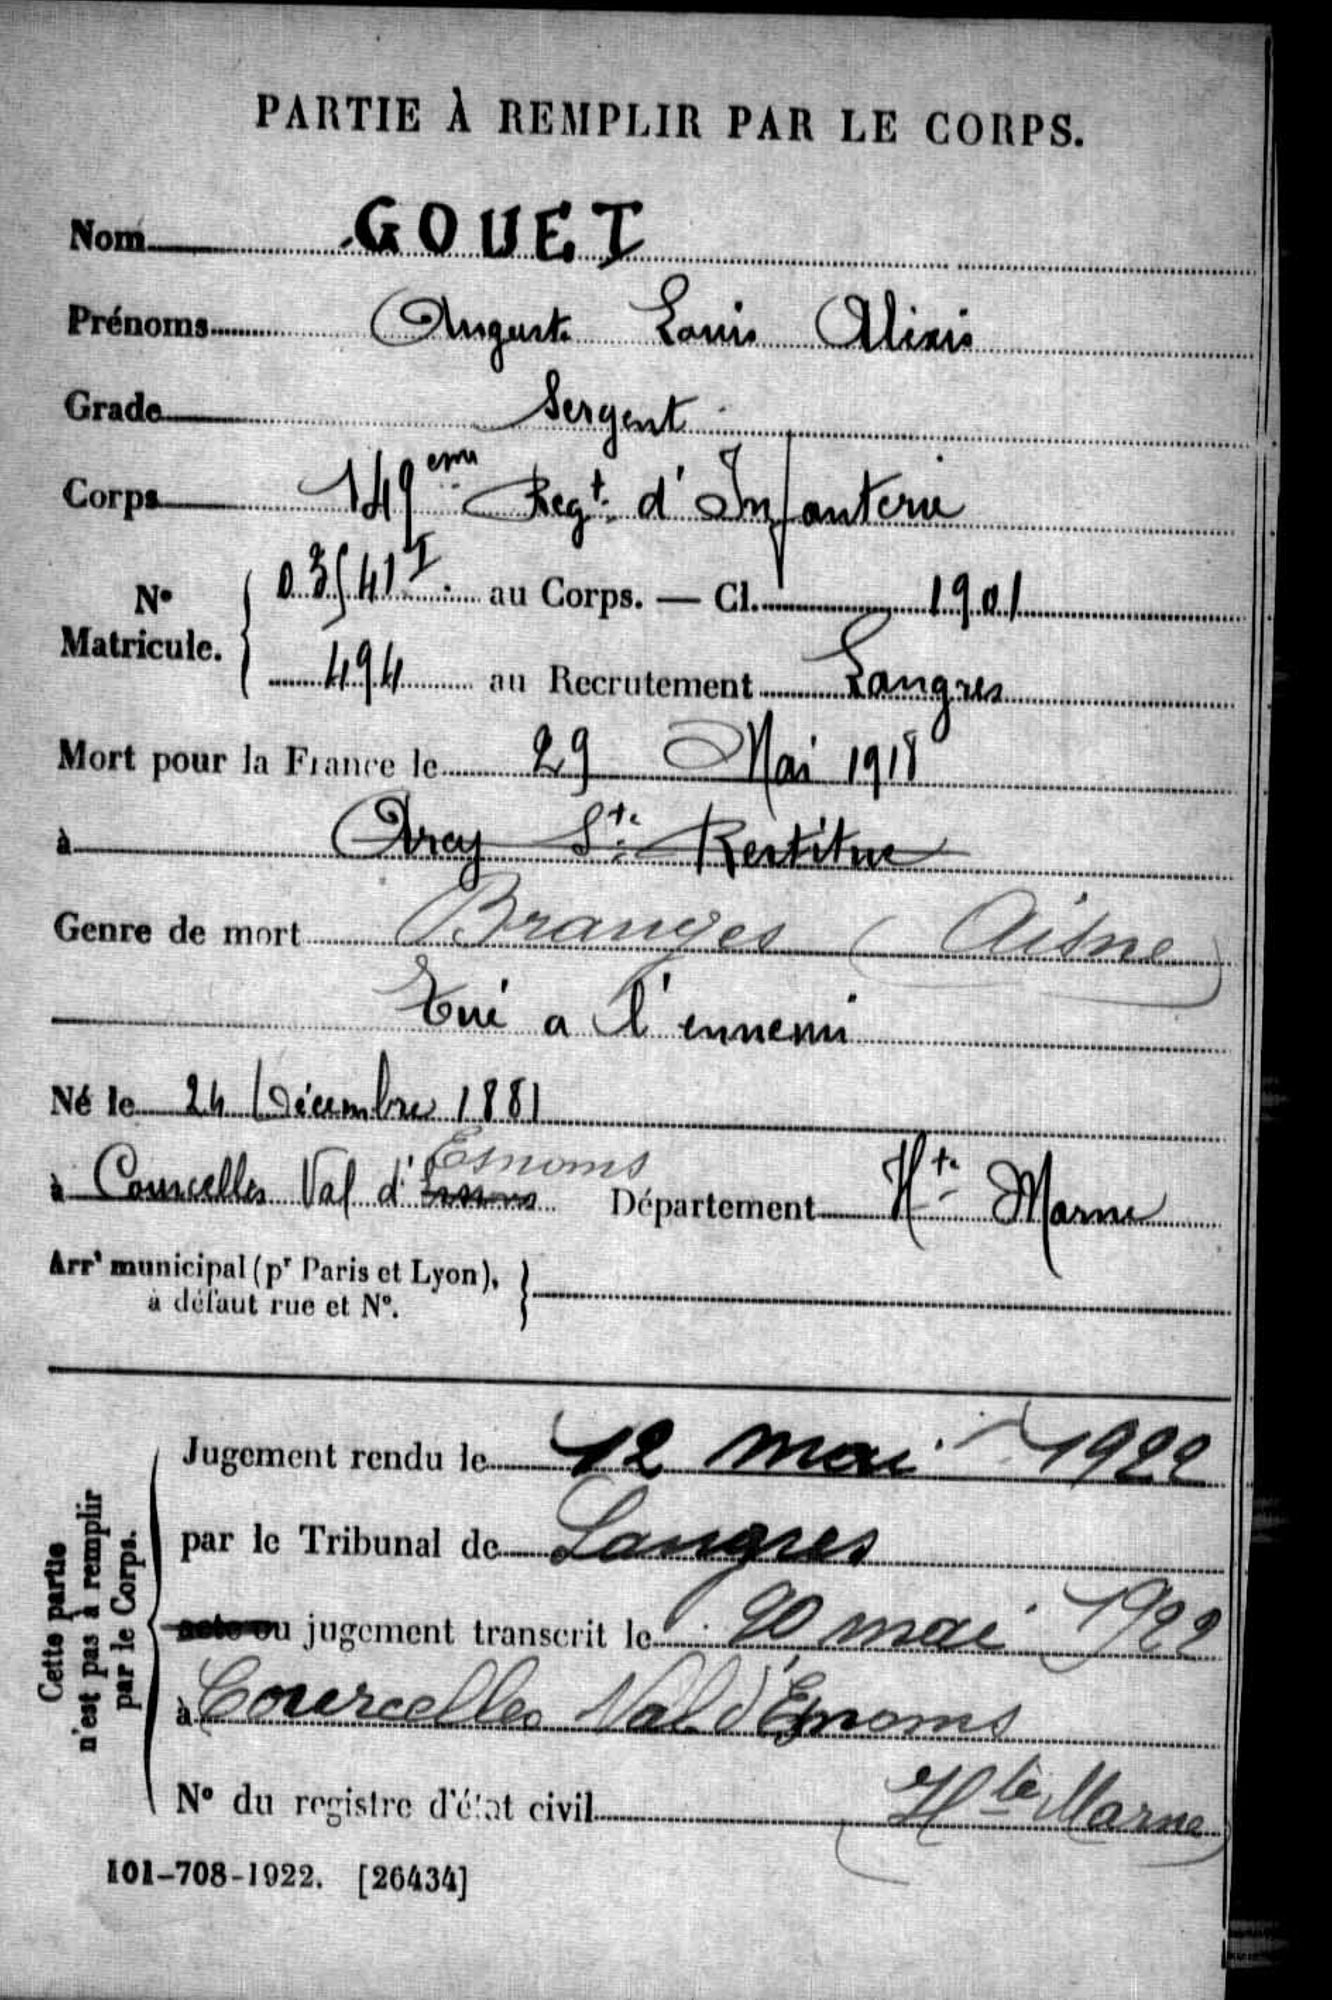 PARTIE À REMPLIR PAR LE CORPS.
Nom GOUET
Prénoms Auguste Louis Alexis
Grade Sergent
Corps 149eme Regt. d'Infanterie
No Matricule. { 03541 I au Corps. — Cl. 1901
494 au Recrutement Langres
Mort pour la France le 29 Mai 1918
à Arcy Ste. Restitue
Genre de mort Branges (Aisne)
Tué a l'ennemi
Né le 24 Décembre 1881
Esnoms
à Courcelles Val d' Département Hte. Marne
Arrt municipal (pr Paris et Lyon),
à défaut rue et No.
Cette partie
n'est pas à remplir
par le Corps.
Jugement rendu le 12 mai 1922
par le Tribunal de Langres
acte ou jugement transcrit le 20 mai 1922
à Courcelles Val d'Esnoms
No du registre d'état civil (Hte Marne)
101-708-1922. [26434]